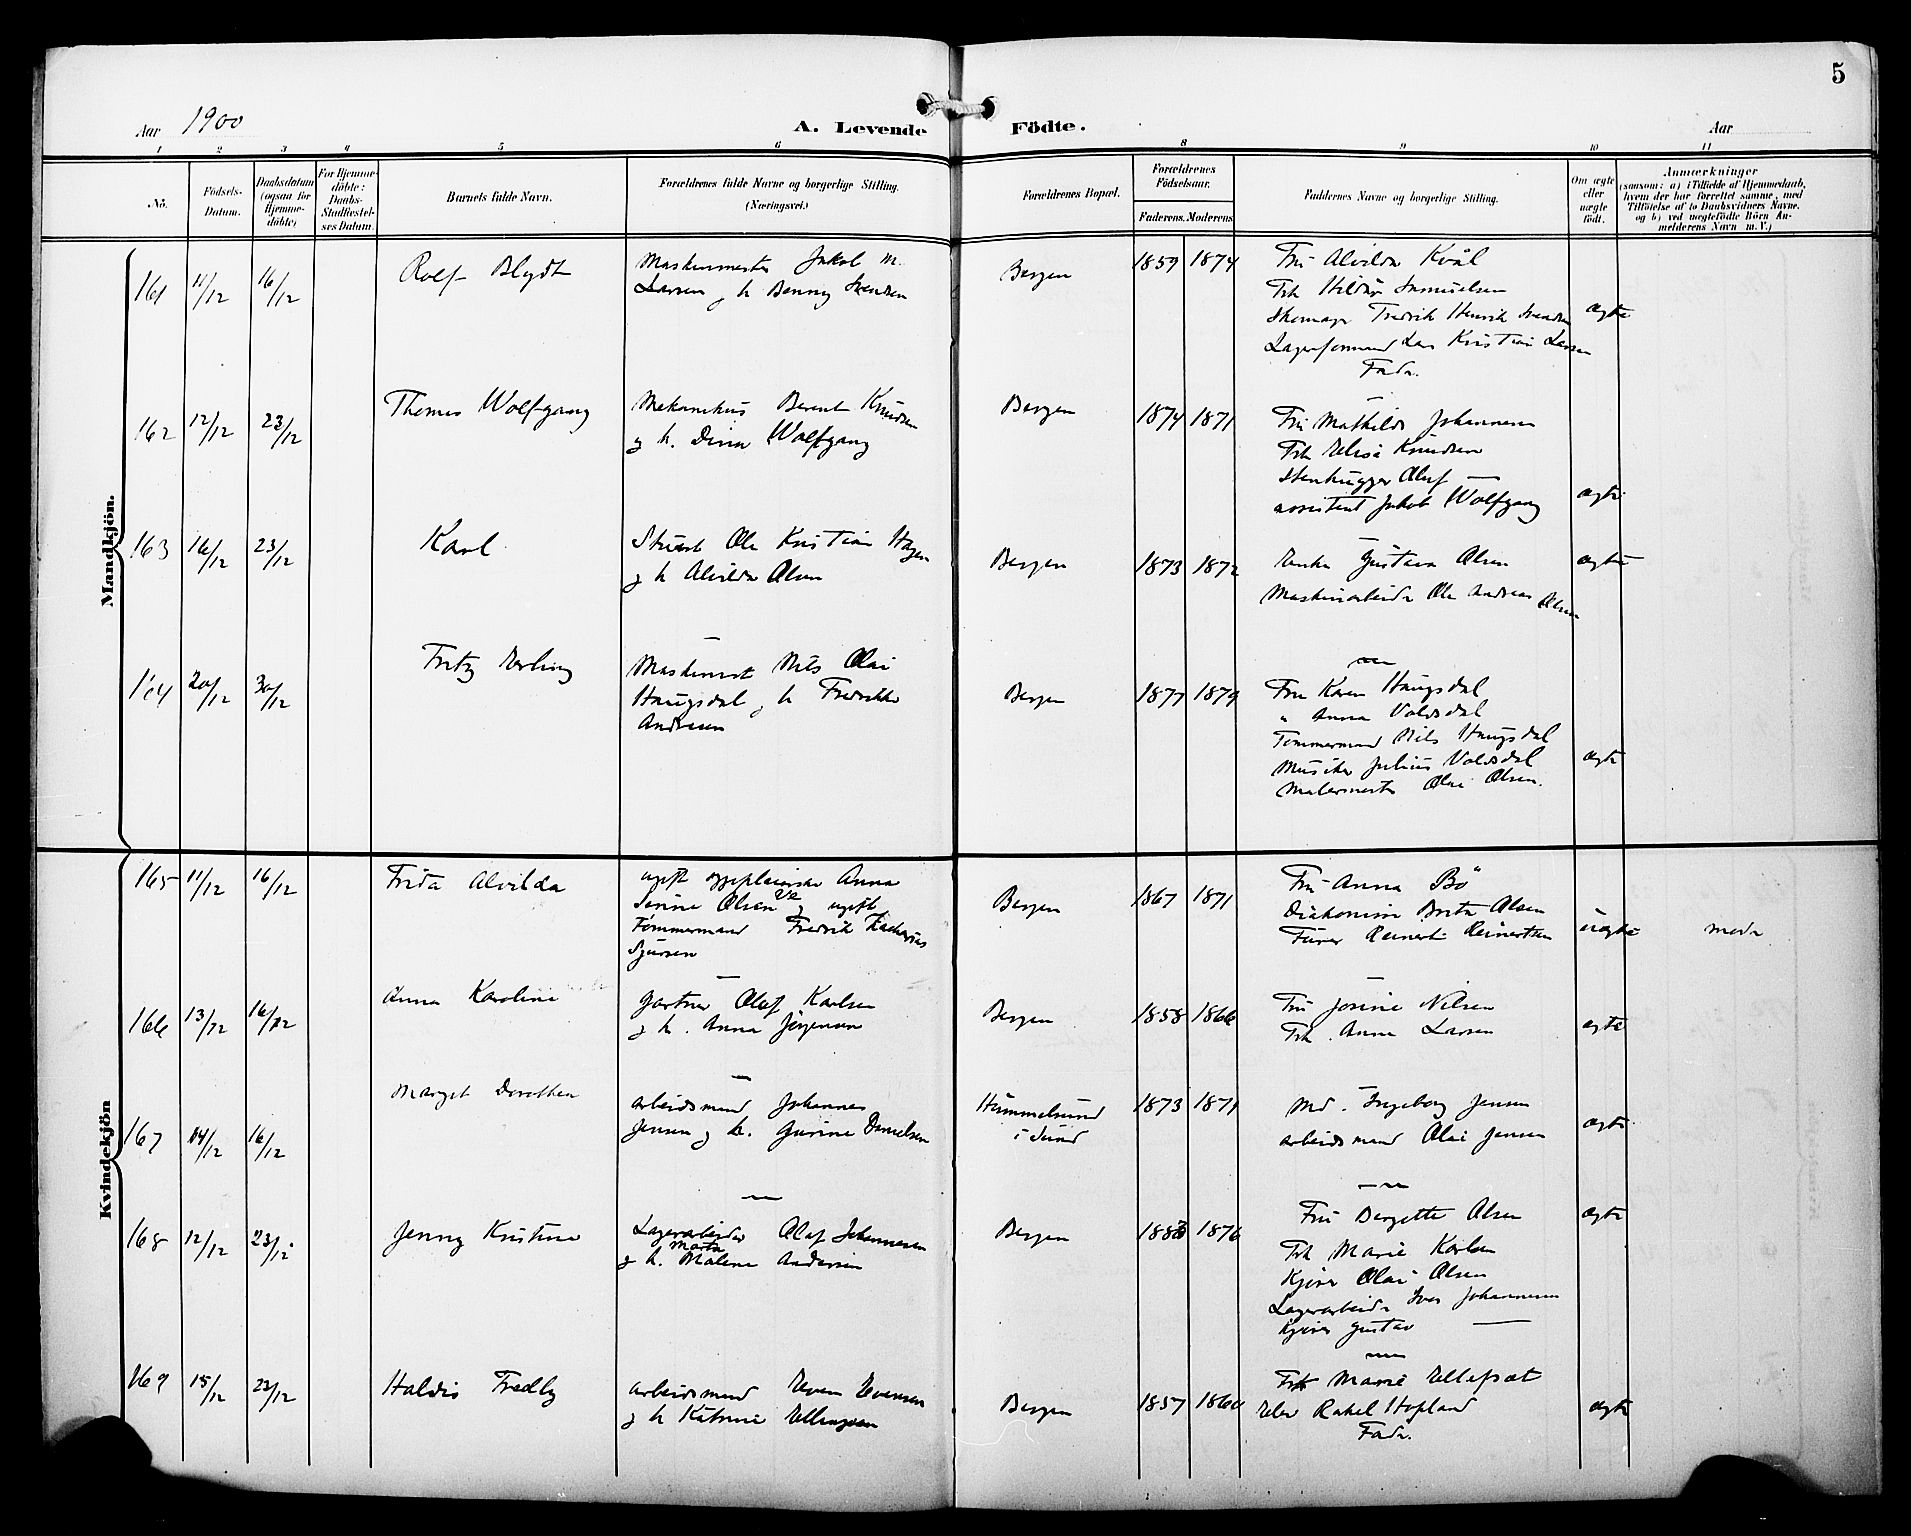 5
Aar 1900
A. Levende Födte.
Aar
1 2 3 4 5 6 8 9 10 11
No.
Födsels-Datum.
Daabsdatum (ogsaa for Hjemme-döbte)
For Hjemme-döbte: Daabs-Stadfæstel-ses Datum.
Barnets fulde Navn.
Forældrenes fulde Navne og borgerlige Stilling. (Næringsvei.)
Forældrenes Bopæl.
Forældrenes Födselsaar.
Faderens. Moderens
Faddernes Navne og borgerlige Stilling.
Om ægte eller uægte födt.
Anmærkninger
(saasom: a) i Tilfælde af Hjemmedaab, hvem der har forrettet samme, med Tilföielse af to Daabsvidners Navne. og b) ved uægtefödte Börn An-melderens Navn m. V.)
Mandkjön.
161 11/12 16/12 Rolf Blydt
Maskinmester Jakob M.
Larsen og h Benny Svendsen
Bergen 1859 1874
Fru Alvilda Kvål
Frk Hildur Samuelsen
Skomager Fredrik Henrik Svendsen
Lagerformand Lars Kristian Larsen
Fader.
ægte
162 12/12 23/12 Thomas Wolfgang
Mekanikus Berent Knudsen
og h. Dina Wolfgang
Bergen 1874 1871
Fru Mathilde Johannesen
Frk Elise Knudsen
Stenhugger Oluf —
assistent Jakob Wolfgang
ægte
163 16/12 23/12 Karl
Stuert Ole Kristian Hagen
og h Alvilda Olsen
Bergen 1873 1872
Enke Gustava Olsen
Maskinarbeider Ole Andreas Olsen
ægte
164 20/12 30/12 Fritz Erling
Maskinist Nils Olai
Haugsdal og h Fredrikke
Andresen
Bergen 1877 1879
Fru Karen Haugsdal
" Anna Valdsdal
Tømmermand Nils Haugsdal
Musiker Julius Valdsdal
Malermester Olai Olsen.
ægte
Kvindekjön
165 11/12 16/12 Frida Alvilda
ugift sygepleierske Anna
Serine Olsen og ugift
Tømmermand Fredrik Zacharias
Sjursen
Bergen 1867 1871
Fru Anna Bö
Diakonisse Brita Olsen
Furer Reinert Reinertsen
uægte
moder
166 13/12 16/12 Anna Karoline
Gartner Olaf Karlsen
og h. Anna Jørgensen
Bergen 1858 1866
Fru Josine Nilsen
Frk. Anna Larsen
ægte
167 04/12 16/12 Margit Dorothea
arbeidsmand Johannes
Jensen og h. Gurine Danielsen
Hummelsund
i Sund
1873 1871
Md. Ingeborg Jensen
arbeidsmand Olai Jensen
ægte
168 12/12 23/12 Jenny Kristine
Lagerarbeider Olaf Johannesen
Marta
og h. Malene Andersen
Bergen 1883 1876
Fru Bergette Olsen
Frk Marie Karlsen
Kjører Olai Olsen
Lagerarbeider Ivar Johannesen
Kjører Gustav —
ægte
169 15/12 23/12 Haldis Fredly
arbeidsmand Even Evensen
og h Katrine Ellingsen
Bergen 1857 1860
Frk Marie Ellefsæt
Elev Rakel Hopland
Fader.
ægte